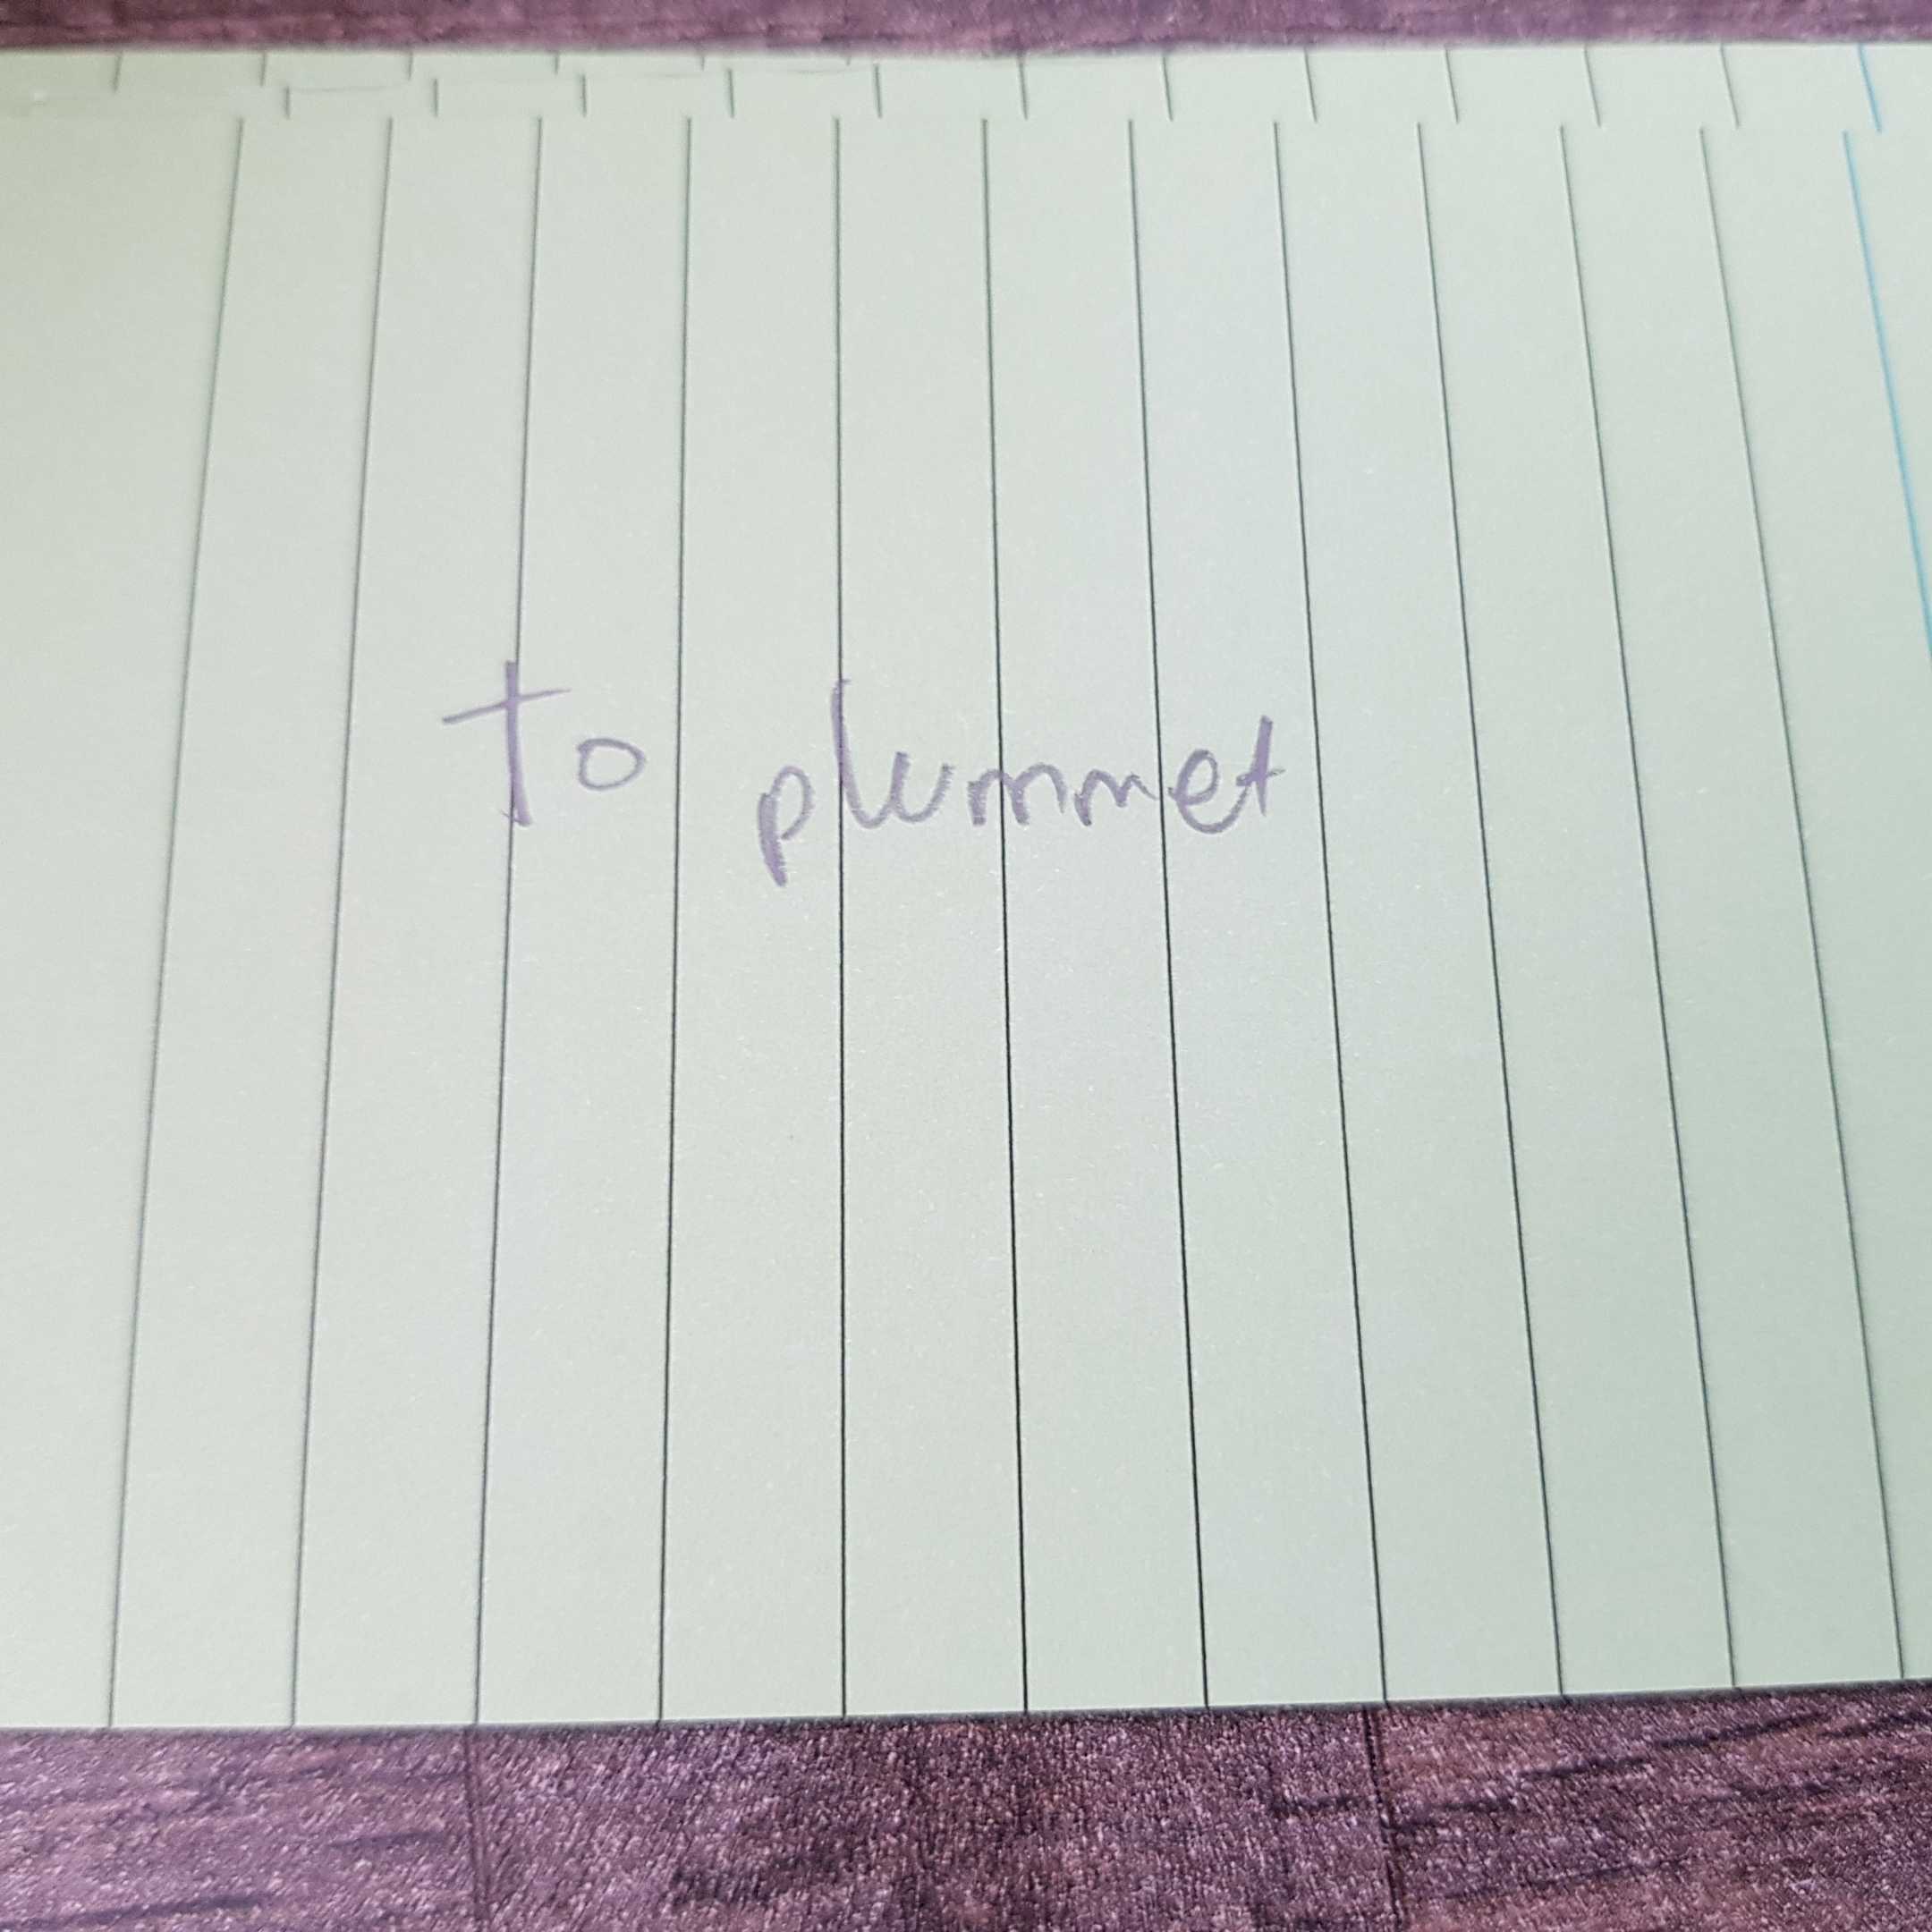 To plummet